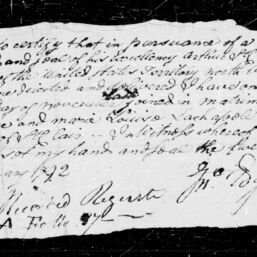 to certify that in pursuance of a
and seal of his Excellency Arthur St
of the United States Territory north
directed and I have on
day of november joined in matrim
and marie Louise Lachapelle
of St Clair In witness whereof
my hand and seal the
1792
Recorded Register
A Folio 97